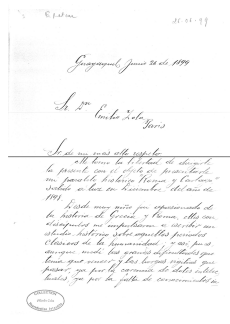 26-06-99
Guayaquil, Junio 26 de 1899
Sr. Dn
Emilio Zola
Paris
Sr. de mi mas alto respeto:
Me tomo la libertad de dirigirle
la presente con el objeto de presentarle
mi paralelo histórico "Roma y
salido a luz en Diciembre del año de
1898.
Desde muy niño fuí apasionado de
la historia de Grecia y Roma, ellas con
me impulsaron a escribir un
estudio histórico sobre aquellos periodos
Clásicos de la humanidad; y así pues,
aunque medí las grandes dificultades que
tenía que vencer y las largas vigilias que
pasar, ya por la carencia de datos
ya por la falta de conocimientos en